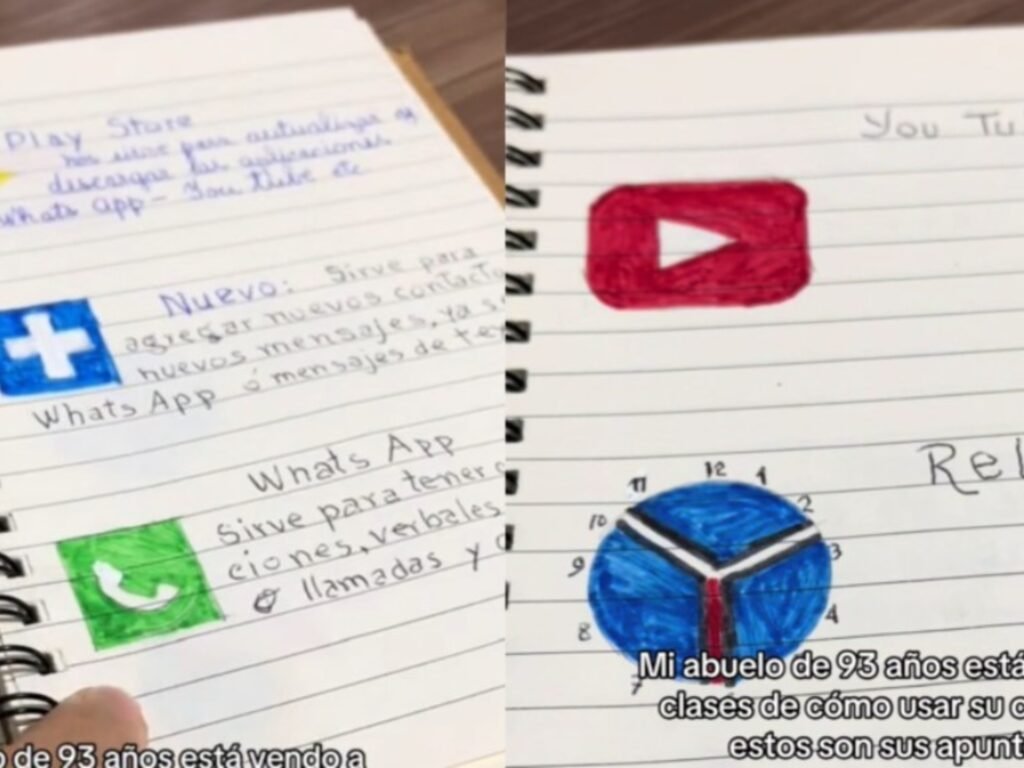 Play Store
nos sirve para actualizar o
descargar las aplicaciones
Whats app - You tube etc
Nuevo: Sirve para
agregar nuevos contacto
nuevos mensajes, ya s
Whats App ó mensajes de te
Whats App
Sirve para tener
ciones, verbales
llamadas y
o de 93 años está yendo a
You Tu
Rel
11 12 1
10 2
9 3
8 4
7
Mi abuelo de 93 años está
clases de cómo usar su c
estos son sus apunt